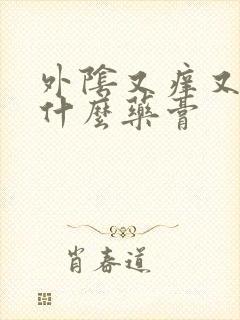 外陰又癢又
什麼藥膏
肖春道